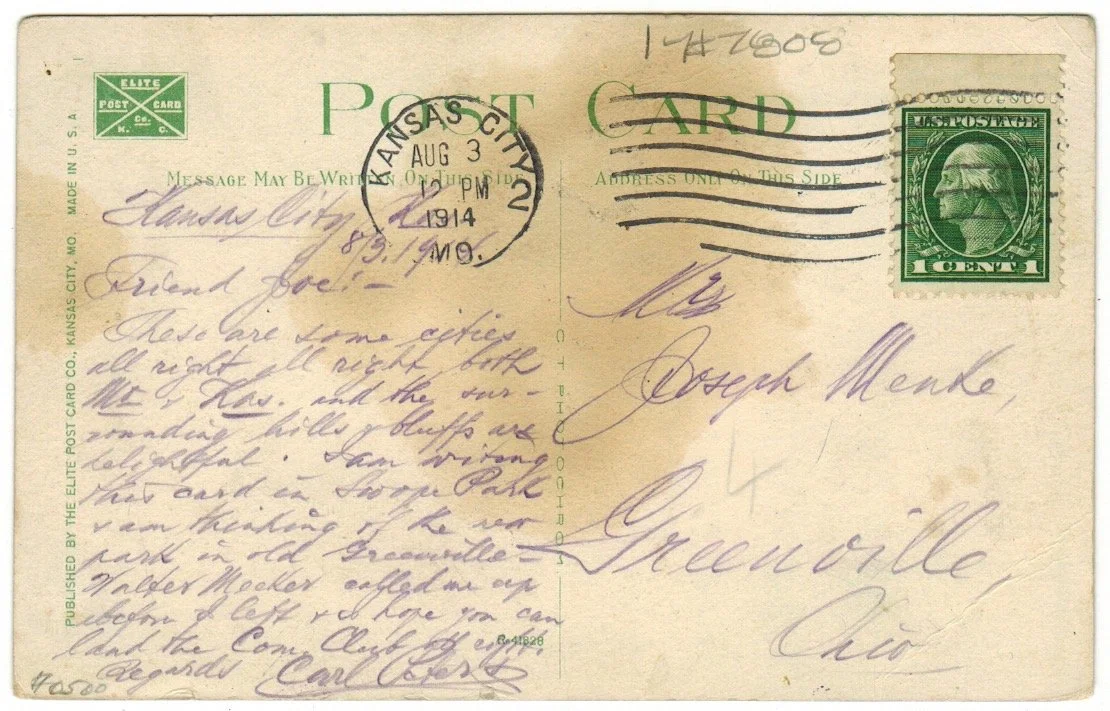 1 7#7808
ELITE
POST CARD
Co.
K. C.
POST CARD
MESSAGE MAY BE WRITTEN ON THIS SIDE
ADDRESS ONLY ON THIS SIDE
KANSAS CITY 2
AUG 3
12 PM
1914
MO.
U.S. POSTAGE
1 CENT 1
MADE IN U. S. A
PUBLISHED BY THE ELITE POST CARD CO., KANSAS CITY, MO.
Kansas City,
8/3.19
Friend Joe:-
These are some cities
all right all right both
Mo & Kas. and the sur-
rounding hills & bluffs are
delightful. I am writing
this card in Swope Park
& am thinking of the new
park in old Greenville-
Walter Meeker called me up
before I left & so hope you can
land the Com. Club all right.
Regards Carl
R-41828
OCTOCHROM
Mrs
Joseph Menke,
Greenville,
Ohio
4